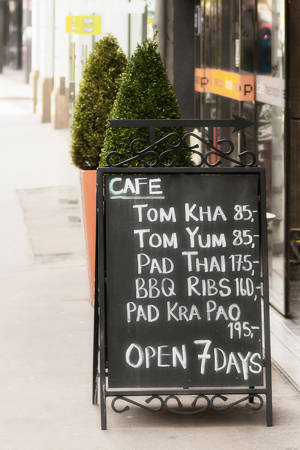 CAFE
TOM KHA 85,-
TOM YUM 85,-
PAD THAI 175,-
BBQ RIBS 160,-
PAD KRA PAO
195,-
OPEN 7 DAYS